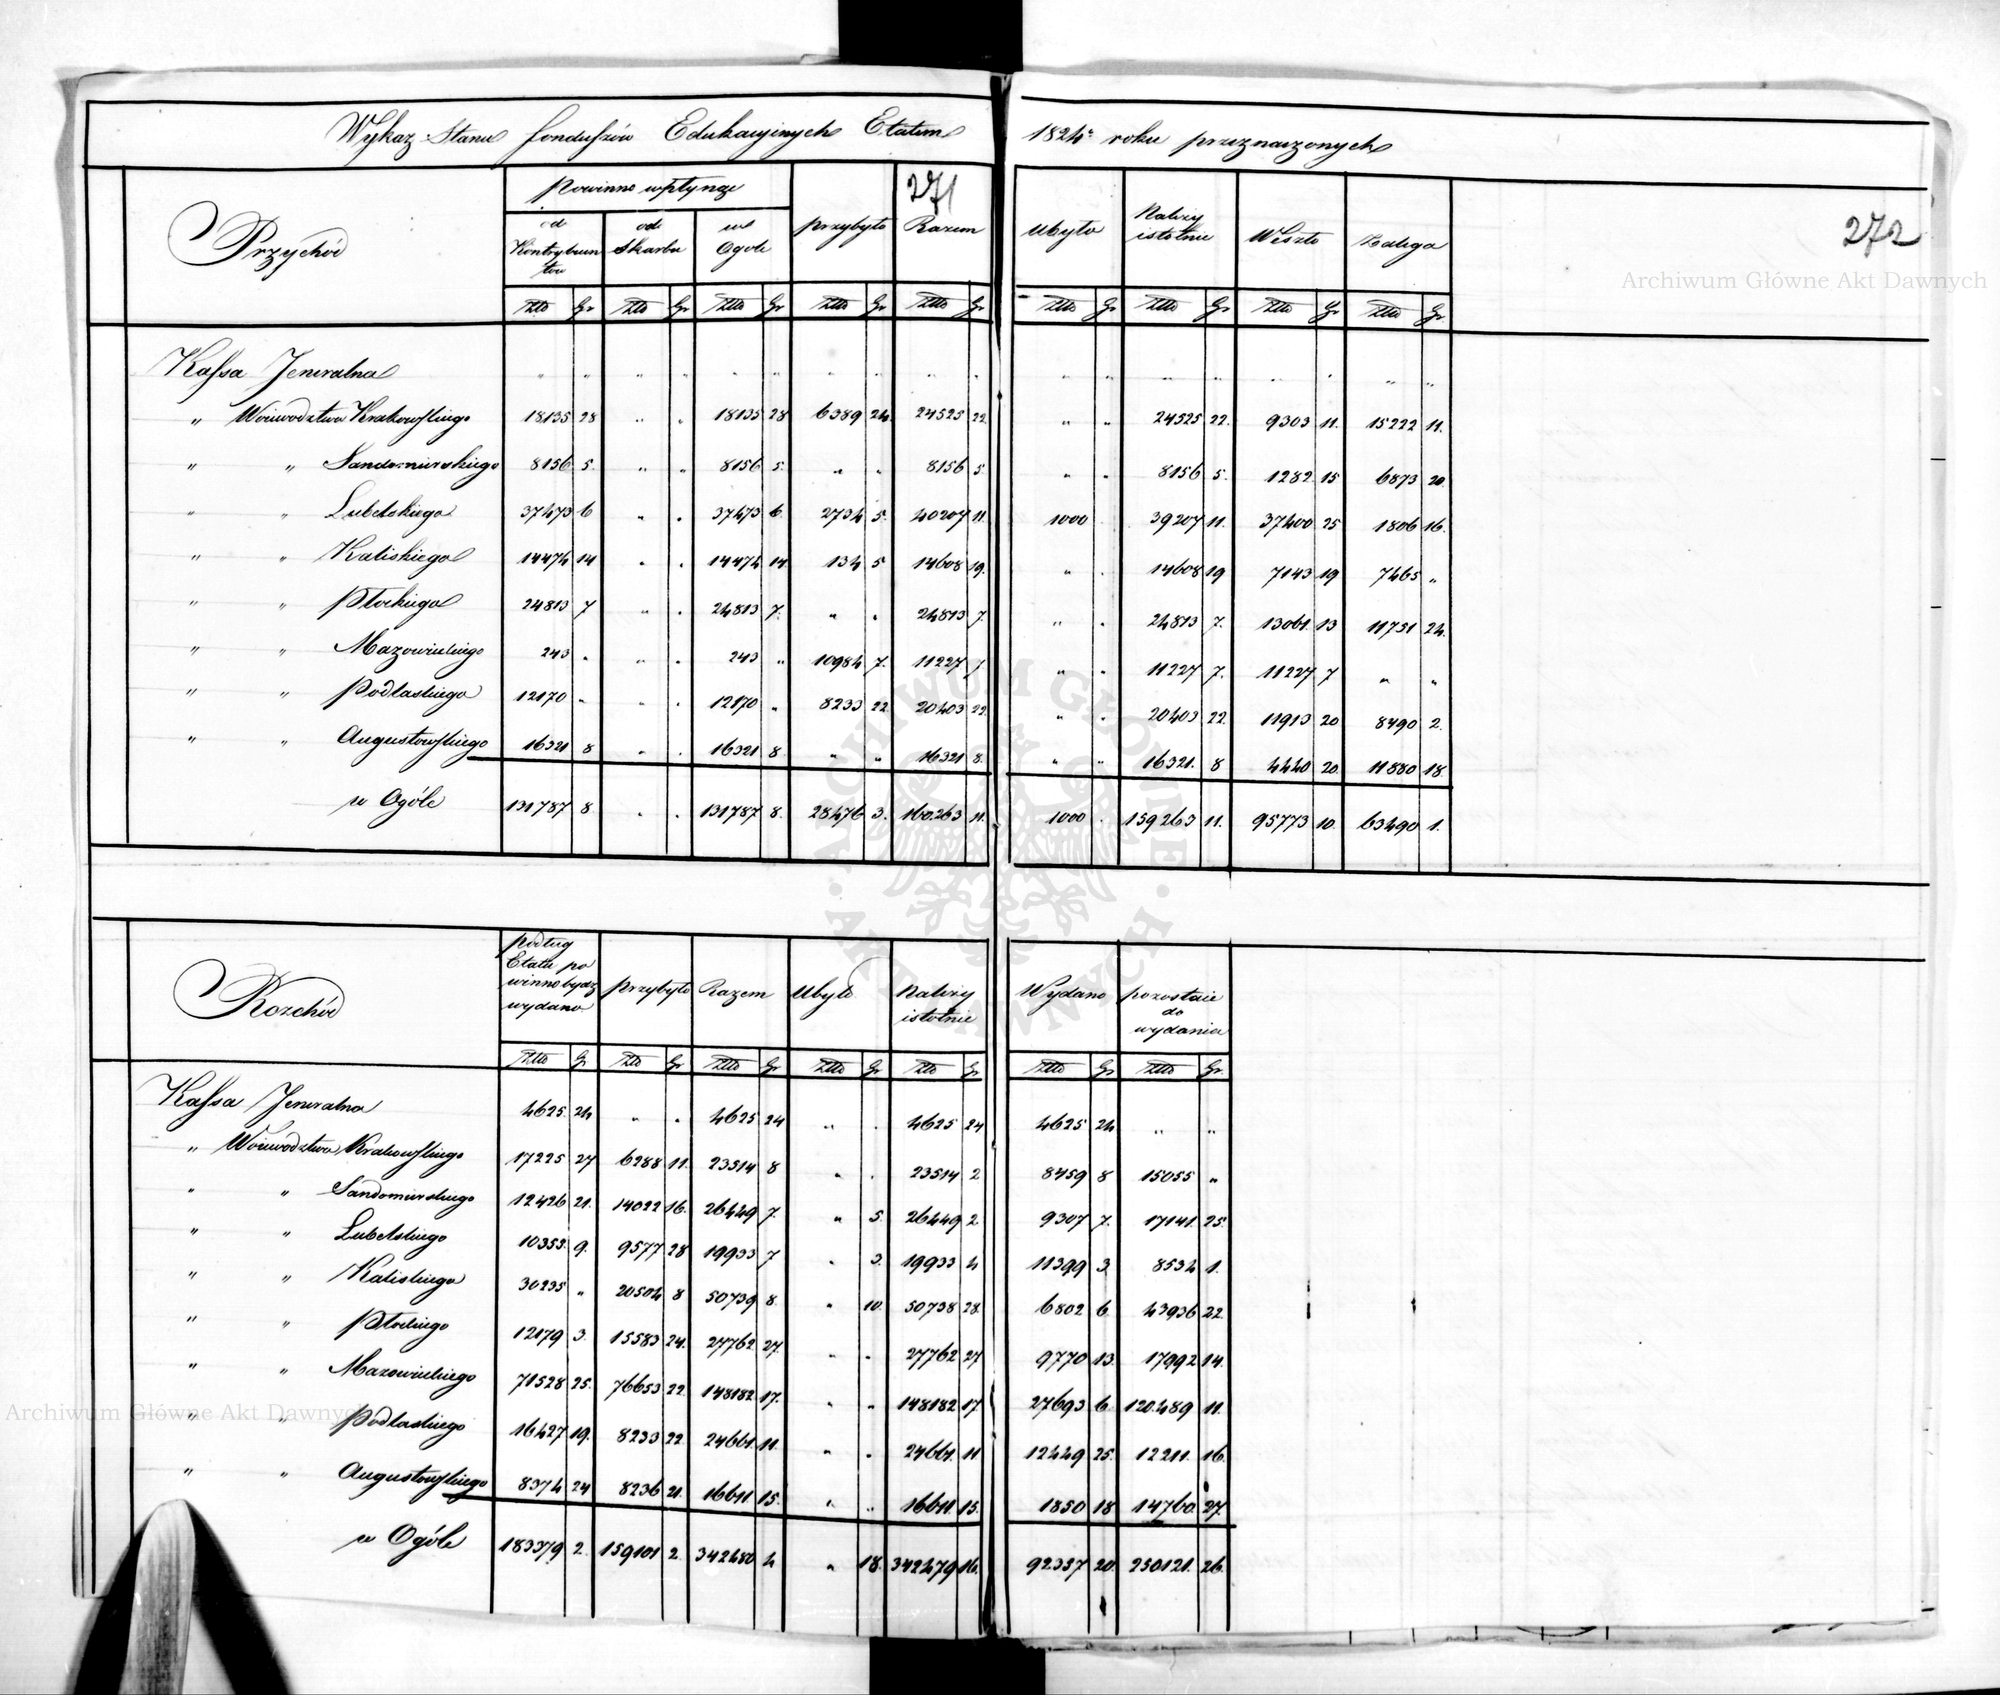 Wykaz Stanu funduszów Edukacyinych Etatem 1824º roku przeznaczonych
271
272
Archiwum Główne Akt Dawnych
Przychód | Powinno wpłynąć | przybyło | Razem | Ubyło | Należy istotnie | Weszło | Zalega
od Kontrybuentów | od Skarbu | w Ogóle
Złto Gr | Złto Gr | Złto Gr | Złto Gr | Złto Gr | Złto Gr | Złto Gr | Złto Gr | Złto Gr
Kassa Jeneralna " " " " " " " " " " " " " " " " " "
" Woiewodztwa Krakowskiego 18135 28 " " 18135 28 6389 24 24525 22 " " 24525 22 9303 11 15222 11
" " Sandomirskiego 8156 5 " " 8156 5 " " 8156 5 " " 8156 5 1282 15 6873 20
" " Lubelskiego 37473 6 " " 37473 6 2734 5 40207 11 1000 39207 11 37400 25 1806 16
" " Kaliskiego 14474 14 " " 14474 14 134 5 14608 19 " " 14608 19 7143 19 7465 "
" " Płockiego 24813 7 " " 24813 7 " " 24813 7 " " 24813 7 13061 13 11751 24
" " Mazowieckiego 243 " " " 243 " 10984 7 11227 7 " " 11227 7 11227 7 " "
" " Podlaskiego 12170 " " " 12170 " 8233 22 20403 22 " " 20403 22 11913 20 8490 2
" " Augustowskiego 16321 8 " " 16321 8 " " 16321 8 " " 16321 8 4440 20 11880 18
w Ogóle 131787 8 " " 131787 8 28476 3 160263 11 1000 " 159263 11 95773 10 63490 1
Rozchód | podług Etatu powinno bydź wydano | przybyło | Razem | Ubyło | Należy istotnie | Wydano | pozostaie do wydania
Złto Gr | Złto Gr | Złto Gr | Złto Gr | Złto Gr | Złto Gr | Złto Gr
Kassa Jeneralna 4625 24 " " 4625 24 " " 4625 24 4625 24 " "
" Woiewodztwa Krakowskiego 17225 27 6288 11 23514 8 " " 23514 2 8459 8 15055 "
" " Sandomirskiego 12426 21 14022 16 26449 7 " 5 26449 2 9307 7 17141 25
" " Lubelskiego 10353 9 9577 28 19933 7 " 3 19933 4 11399 3 8534 1
" " Kaliskiego 30235 " 20504 8 50739 8 " 10 50738 28 6802 6 43936 22
" " Płockiego 12179 3 15583 24 27762 27 " " 27762 27 9770 13 17992 14
" " Mazowieckiego 71528 25 76653 22 148182 17 " " 148182 17 27693 6 120489 11
" " Podlaskiego 16427 19 8233 22 24661 11 " " 24661 11 12449 25 12211 16
" " Augustowskiego 8374 24 8236 21 16611 15 " " 16611 15 1850 18 14760 27
w Ogóle 183379 2 159101 2 342480 4 " 18 342479 16 92357 20 250121 26
Archiwum Główne Akt Dawnych
ARCHIWUM GŁÓWNE AKT DAWNYCH